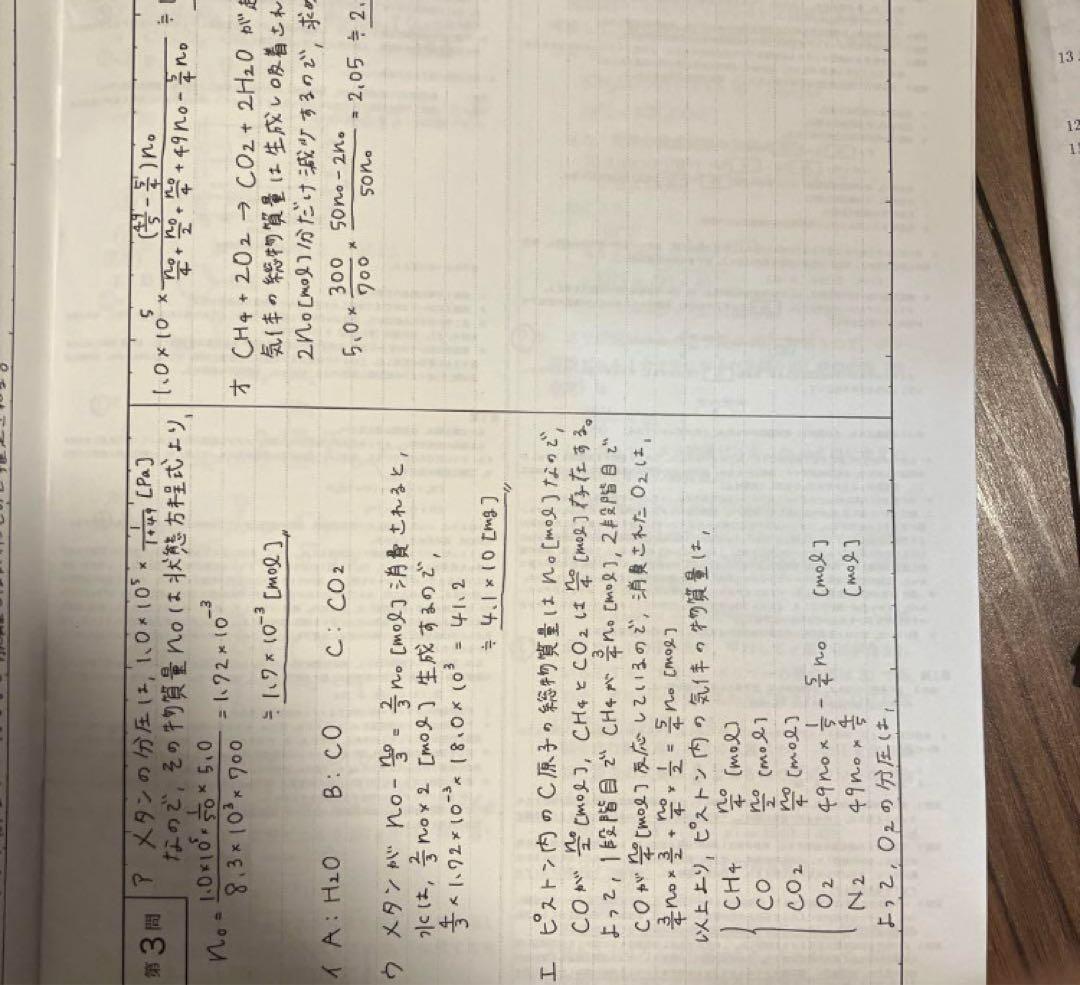 第3問
ア メタンの分圧は、1.0×10⁵×1/(1+49)[Pa]
なので、その物質量n₀は状態方程式より、
n₀=(1.0×10⁵×1/50×5.0)/(8.3×10³×700)=1.72×10⁻³
≒1.7×10⁻³[mol]〃
イ A:H₂O B:CO C:CO₂
ウ メタンがn₀-n₀/3=2/3n₀[mol]消費されると、
水は、2/3n₀×2[mol]生成するので、
4/3×1.72×10⁻³×18.0×10³=41.2
≒4.1×10[mg]〃
エ ピストン内のC原子の総物質量はn₀[mol]なので、
COがn₀/2[mol]、CH₄とCO₂はn₀/4[mol]存在する。
よって、1段階目でCH₄が3/4n₀[mol]、2段階目で
COがn₀/4[mol]反応しているので、消費されたO₂は、
3/4n₀×3/2+n₀/4×1/2=5/4n₀[mol]
以上より、ピストン内の気体の物質量は、
CH₄ n₀/4 [mol]
CO n₀/2 [mol]
CO₂ n₀/4 [mol]
O₂ 49n₀×1/5-5/4n₀ [mol]
N₂ 49n₀×4/5 [mol]
よって、O₂の分圧は、
1.0×10⁵×((49/5-5/4)n₀)/(n₀/4+n₀/2+n₀/4+49n₀-5/4n₀)≒
オ CH₄+2O₂→CO₂+2H₂Oが
気体の総物質量は生成し吸着され
2n₀[mol]分だけ減少するので、求め
5.0×300/700×(50n₀-2n₀)/50n₀=2.05≒2.
13
12